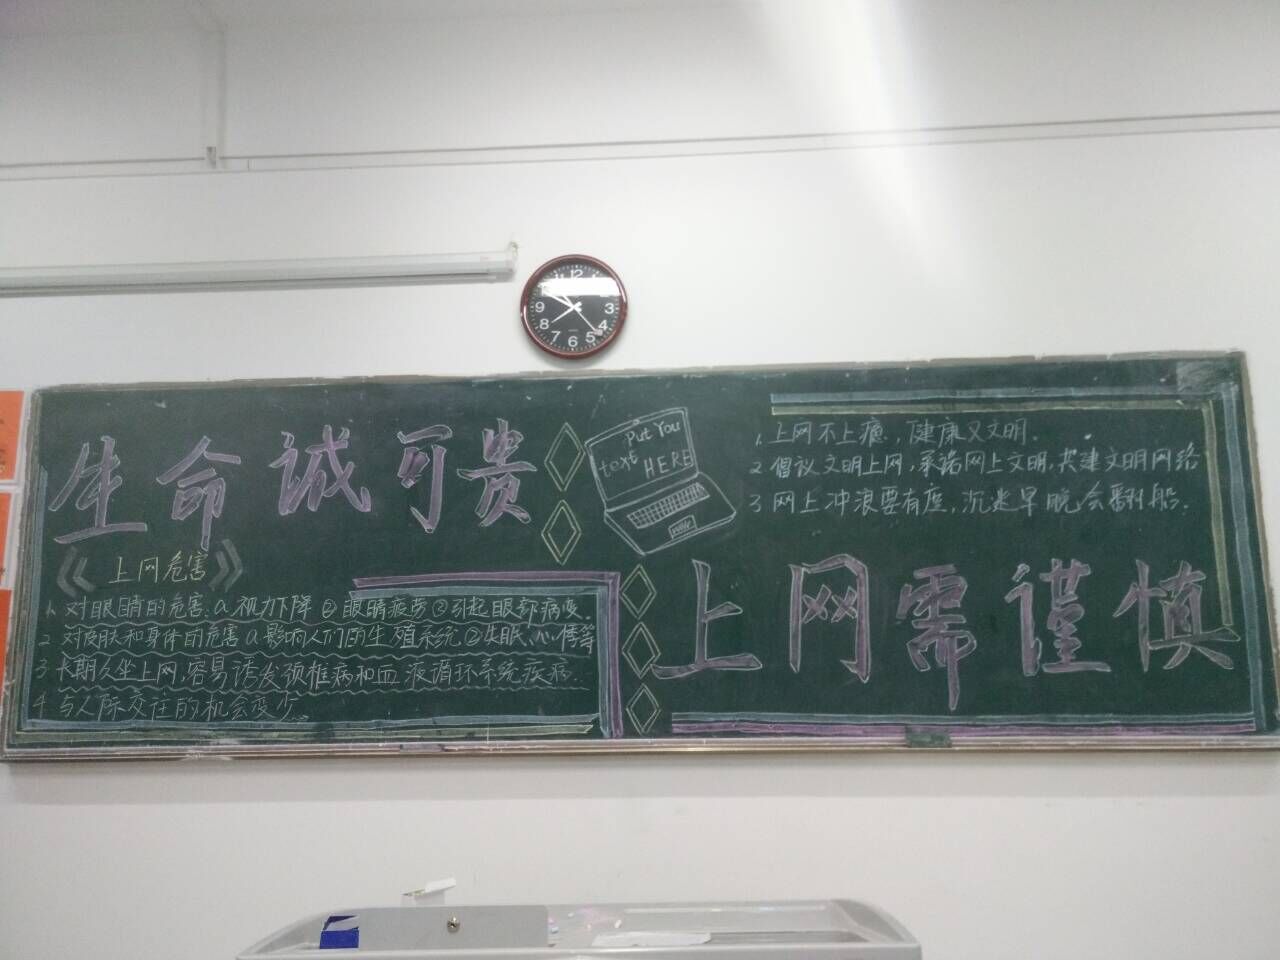 生命诚可贵
《上网危害》
1. 对眼睛的危害、a.视力下降 ②眼睛疲劳 ③引起眼部病变.
2 对皮肤和身体的危害 a.影响人们的生殖系统 ②失眠、心悸等
3 长期久坐上网,容易诱发颈椎病和血液循环系统疾病.
4 与人际交往的机会变少.
Put You
text HERE
1. 上网不上瘾,健康又文明.
2 倡议文明上网,承诺网上文明,共建文明网络
3 网上冲浪要有度,沉迷早晚会翻船.
上网需谨慎
12
3
4
5
6
7
8
9